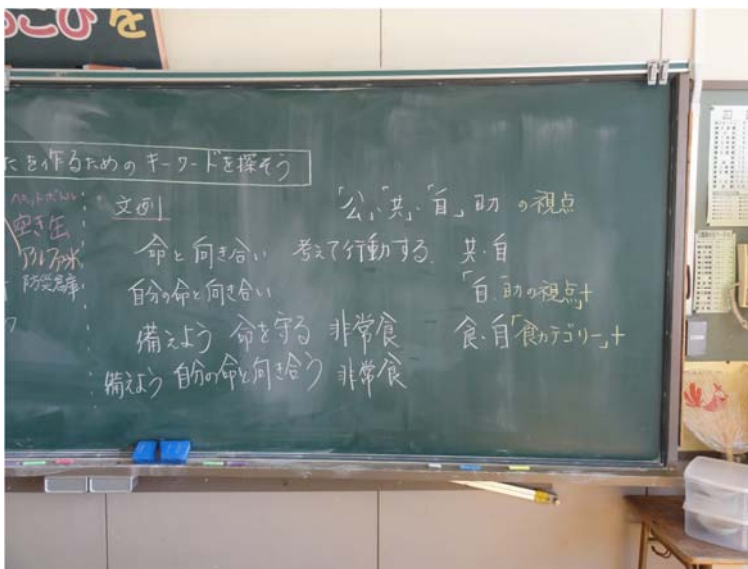 こひを
たを作るための キーワードを探そう
ペットボトル
空き缶
アルファ米
防災倉庫
文例 「公」、「共」、「自」助 の視点
命と向き合い 考えて行動する 共・自
自分の命と向き合い 「自・助の視点」+
備えよう 命を守る 非常食 食・自「食カテゴリー」+
備えよう 自分の命と向き合う 非常食